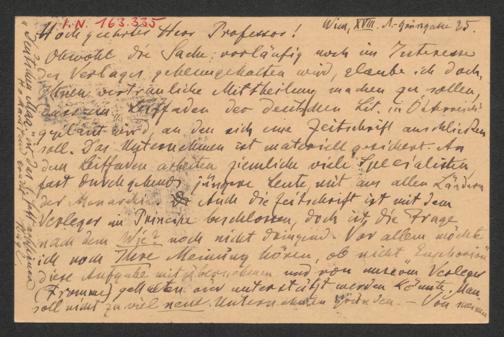 I.N. 163.335
Wien, XVIII. A. Grüngasse 25.
Hochgeehrter Herr Professor!
Obwohl die Sache vorläufig noch im Interesse
des Verlages geheimgehalten wird, glaube ich doch,
Ihnen vertrauliche Mittheilung machen zu sollen,
Leitfaden der deutschen Lit. in Österreich
geplant wird, an den sich eine Zeitschrift anschließen
soll. Das Unternehmen ist materiell gesichert. An
dem Leitfaden arbeiten ziemlich viele Specialisten
fast durchgehends jüngere Leute mit aus allen Ländern
der Monarchie. Auch die Zeitschrift ist mit dem
Verleger im Principe beschlossen, doch ist die Frage
nach dem Wie? noch nicht dringend. Vor allem möchte
ich noch Ihre Meinung hören, ob nicht "Euphorion"
diese Aufgabe mit übernehmen und von unserem Verleger
(Fromme) gehalten oder unterstützt werden könnte. Man
soll nicht zu viel neue Unternehmen gründen. – Von